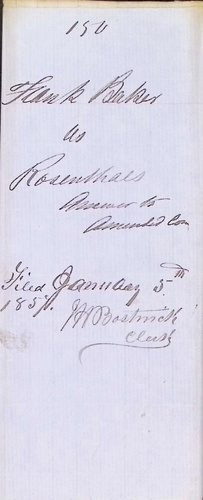 150
Frank Baker
vs
Rosenthals
Answer to
Amended Com
Filed January 5th
1857.
Bostwick
Clerk